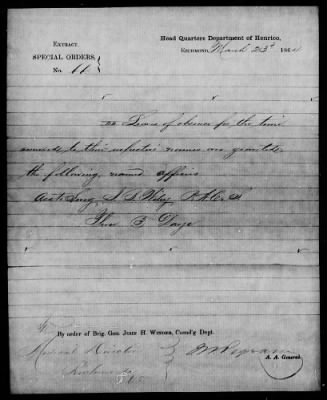 Head Quarters Department of Henrico,
Richmond, March 23d 1864
Extract.
SPECIAL ORDERS,
No. 11
Leave of absence for the time
annexed to their respective names are granted
the following named officers
Asst Surg
Days
By order of Brig. Gen. John H. Winder, Comd'g Dept.
Medical Director
Richmond
A. A. General.